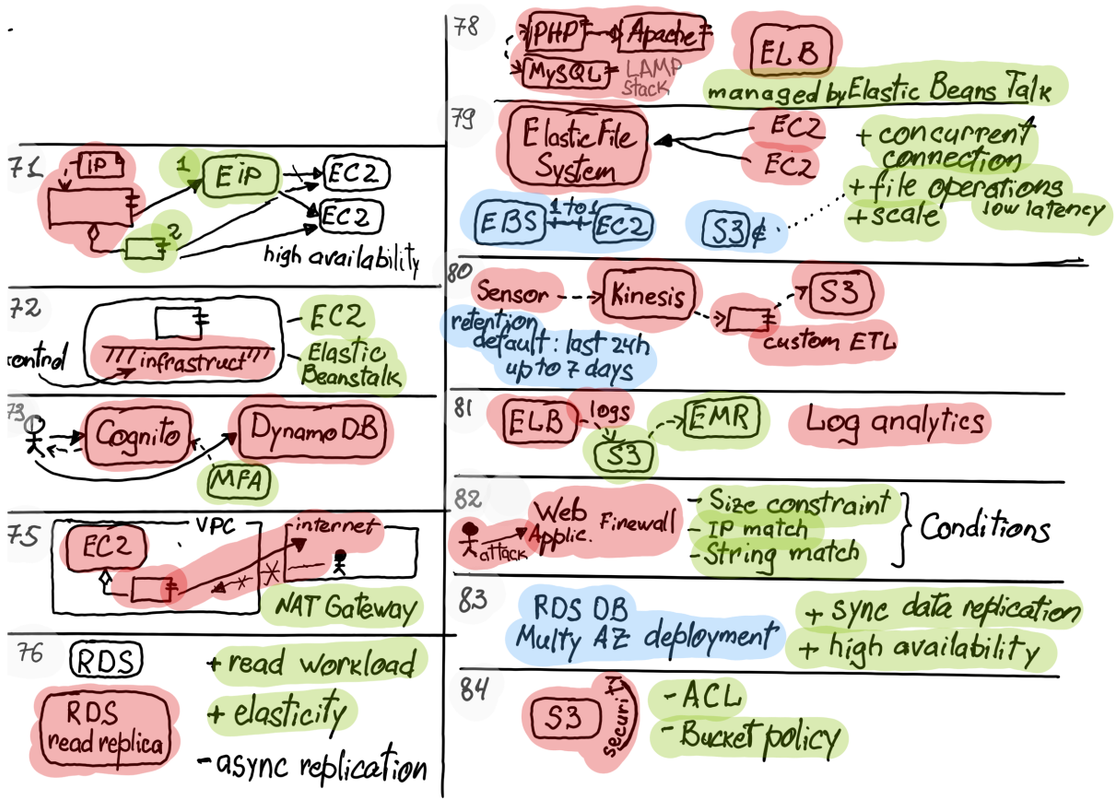 71
IP
1
EIP
EC2
EC2
2
high availability
72
EC2
control
infrastruct
Elastic
Beanstalk
73
Cognito
DynamoDB
MFA
75
VPC
internet
EC2
NAT Gateway
76
RDS
+ read workload
RDS
read replica
+ elasticity
- async replication
78
PHP
Apache
ELB
MySQL
LAMP
Stack
managed by Elastic Beans Talk
79
Elastic File
System
EC2
EC2
+ concurrent
connection
+ file operations
low latency
+ scale
EBS
1 to 1
EC2
S3
¢
80
Sensor
Kinesis
S3
custom ETL
retention
default: last 24h
up to 7 days
81
ELB
logs
S3
EMR
Log analytics
82
attack
Web
Applic. Firewall
- Size constraint
- IP match
- String match
Conditions
83
RDS DB
Multy AZ deployment
+ sync data replication
+ high availability
84
S3
security
- ACL
- Bucket policy